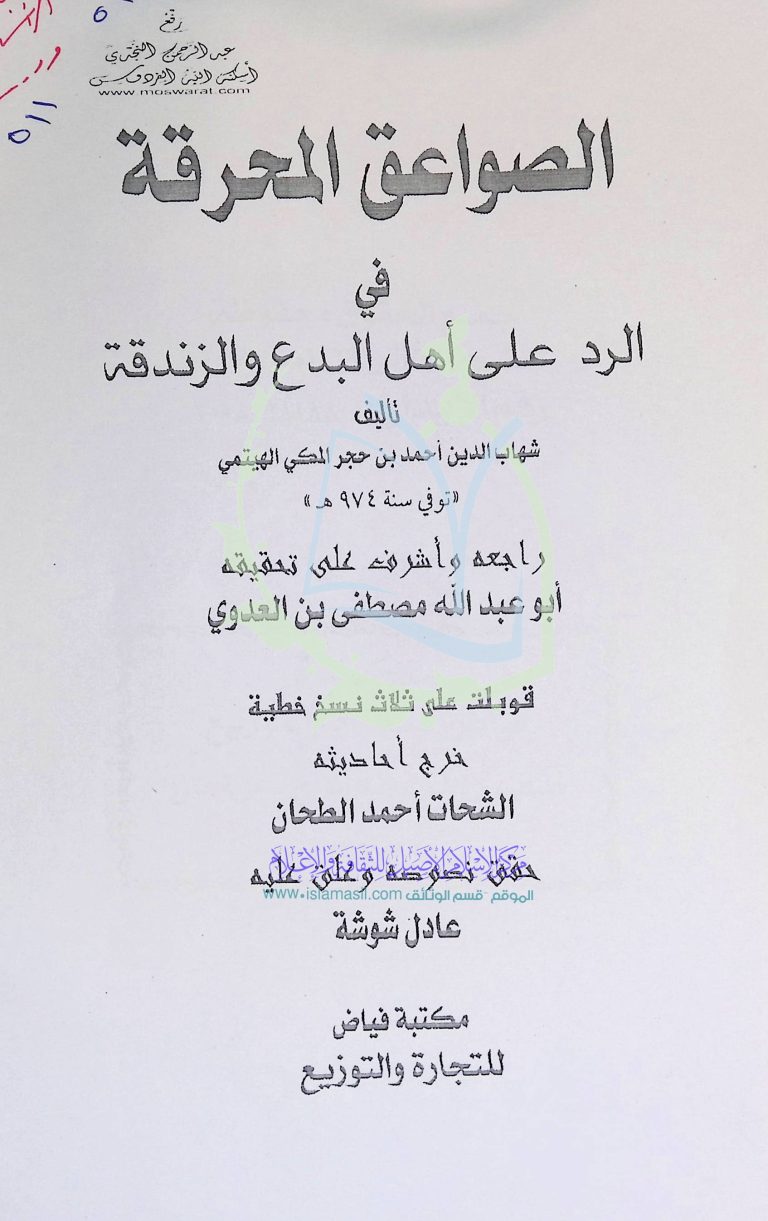 رفع
عبد الرحمن النجدي
أسكنه الله الفردوس
www.moswarat.com
٥١١
الصواعق المحرقة
في
الرد على أهل البدع والزندقة
تأليف
شهاب الدين أحمد بن حجر المكي الهيتمي
«توفي سنة ٩٧٤ هـ»
راجعه وأشرف على تحقيقه
أبو عبد الله مصطفى بن العدوي
قوبلت على ثلاث نسخ خطية
خرج أحاديثه
الشحات أحمد الطحان
مركز الإسلام الأصيل للثقافة والإعلام
حقق نصوصه وعلق عليه
الموقع - قسم الوثائق www.islamasil.com
عادل شوشة
مكتبة فياض
للتجارة والتوزيع